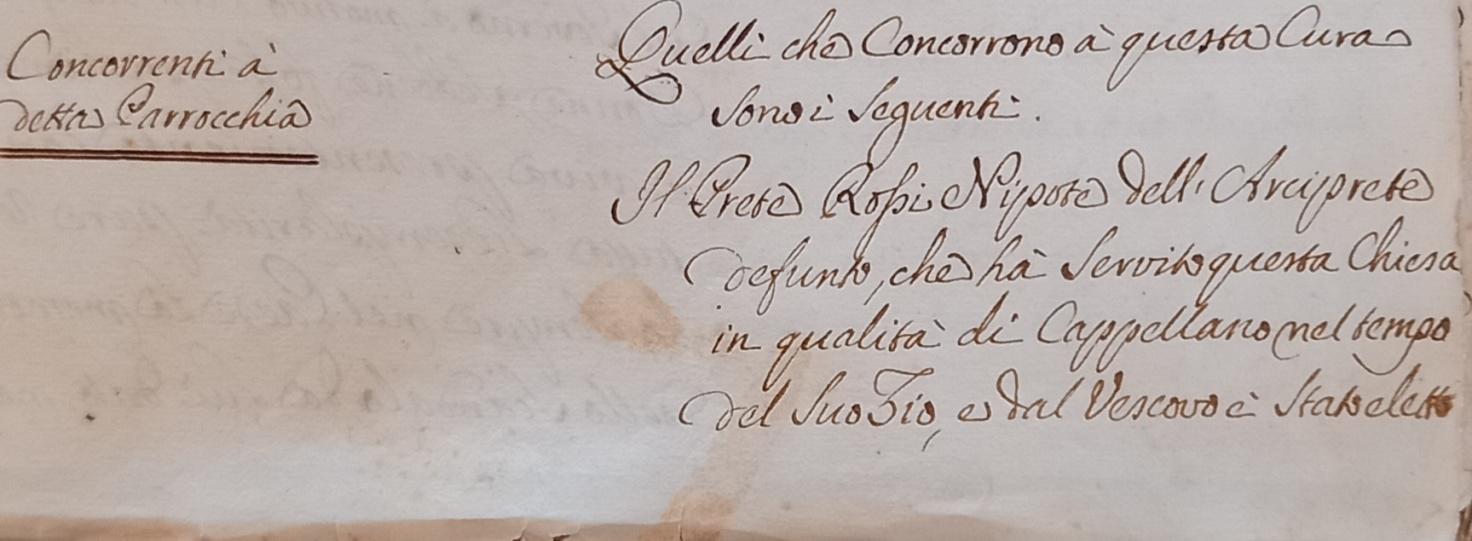 Concorrenti à
detta Parrocchia
Quelli che Concorrono à questa Cura
sono i seguenti.
Il Prete Rossi Nipote dell' Arciprete
defunto, che hà servito questa Chiesa
in qualità di Cappellano nel tempo
del suo Zio, e dal Vescovo è stato eletto